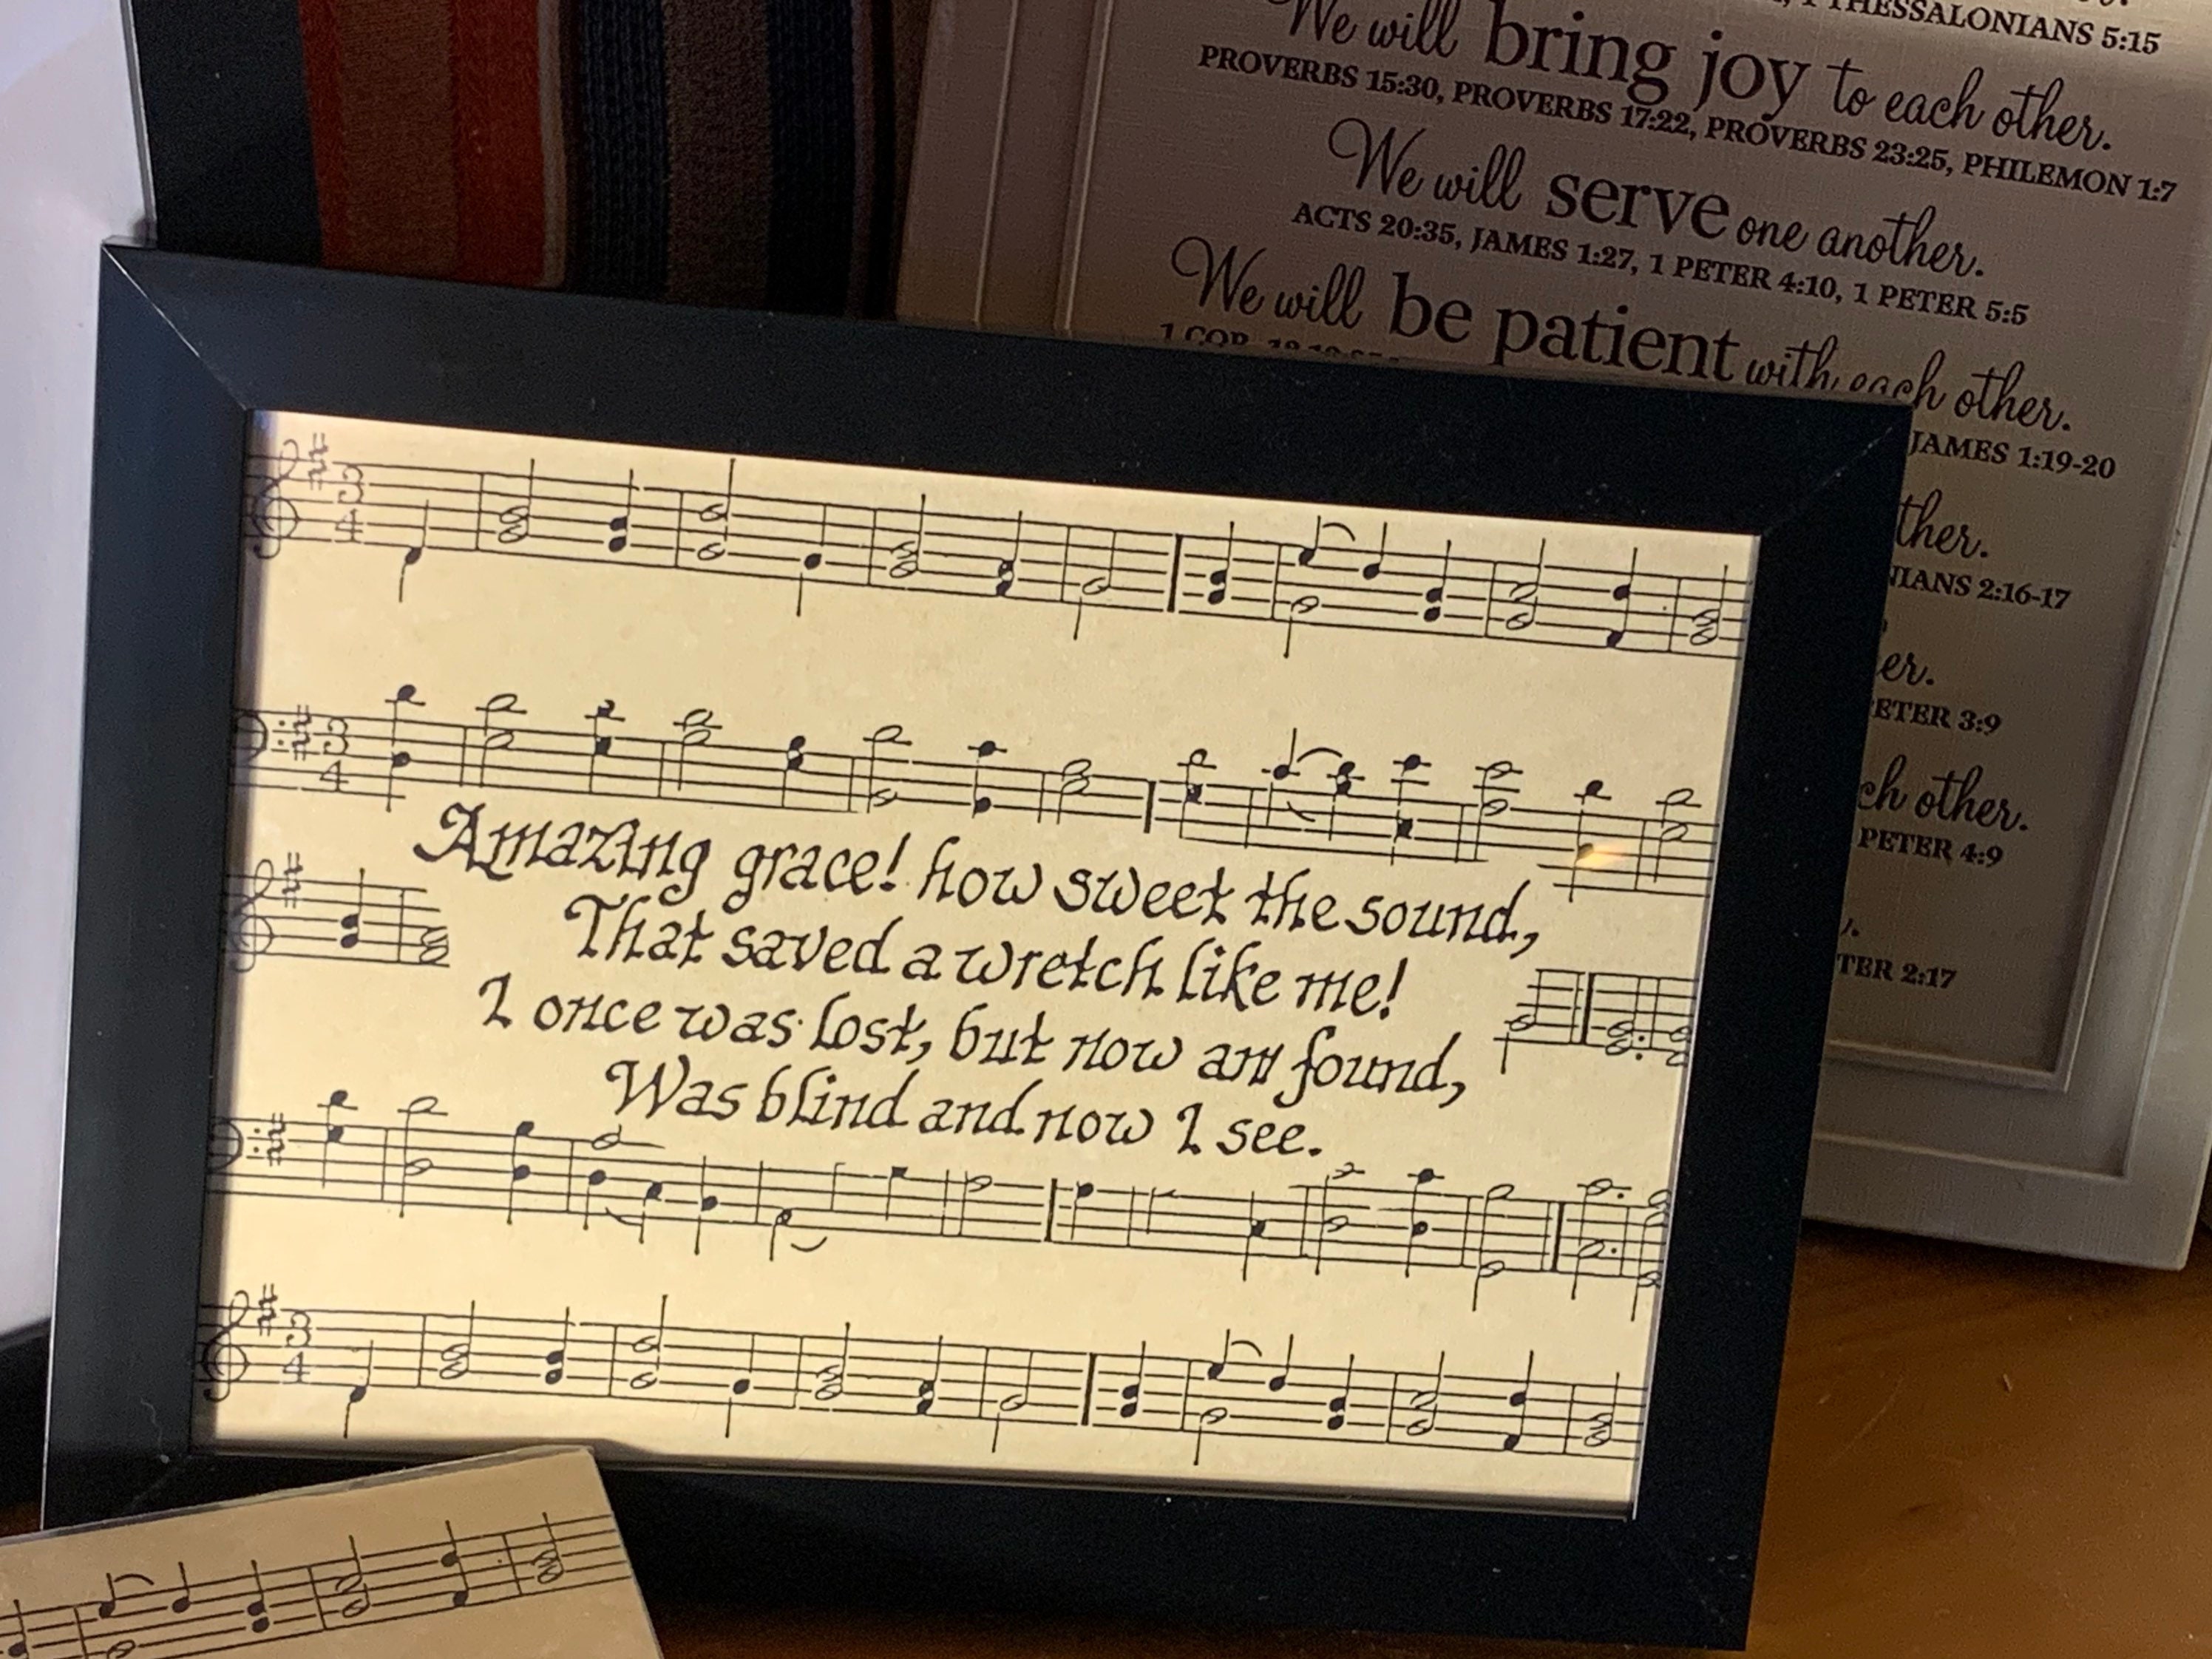 1 THESSALONIANS 5:15
We will bring joy to each other.
PROVERBS 15:30, PROVERBS 17:22, PROVERBS 23:25, PHILEMON 1:7
We will serve one another.
ACTS 20:35, JAMES 1:27, 1 PETER 4:10, 1 PETER 5:5
We will be patient with each other.
1 COR.
JAMES 1:19-20
ther.
NIANS 2:16-17
er.
PETER 3:9
ch other.
PETER 4:9
TER 2:17
3
4
3
4
Amazing grace! how sweet the sound,
That saved a wretch like me!
I once was lost, but now am found,
Was blind and now I see.
3
4